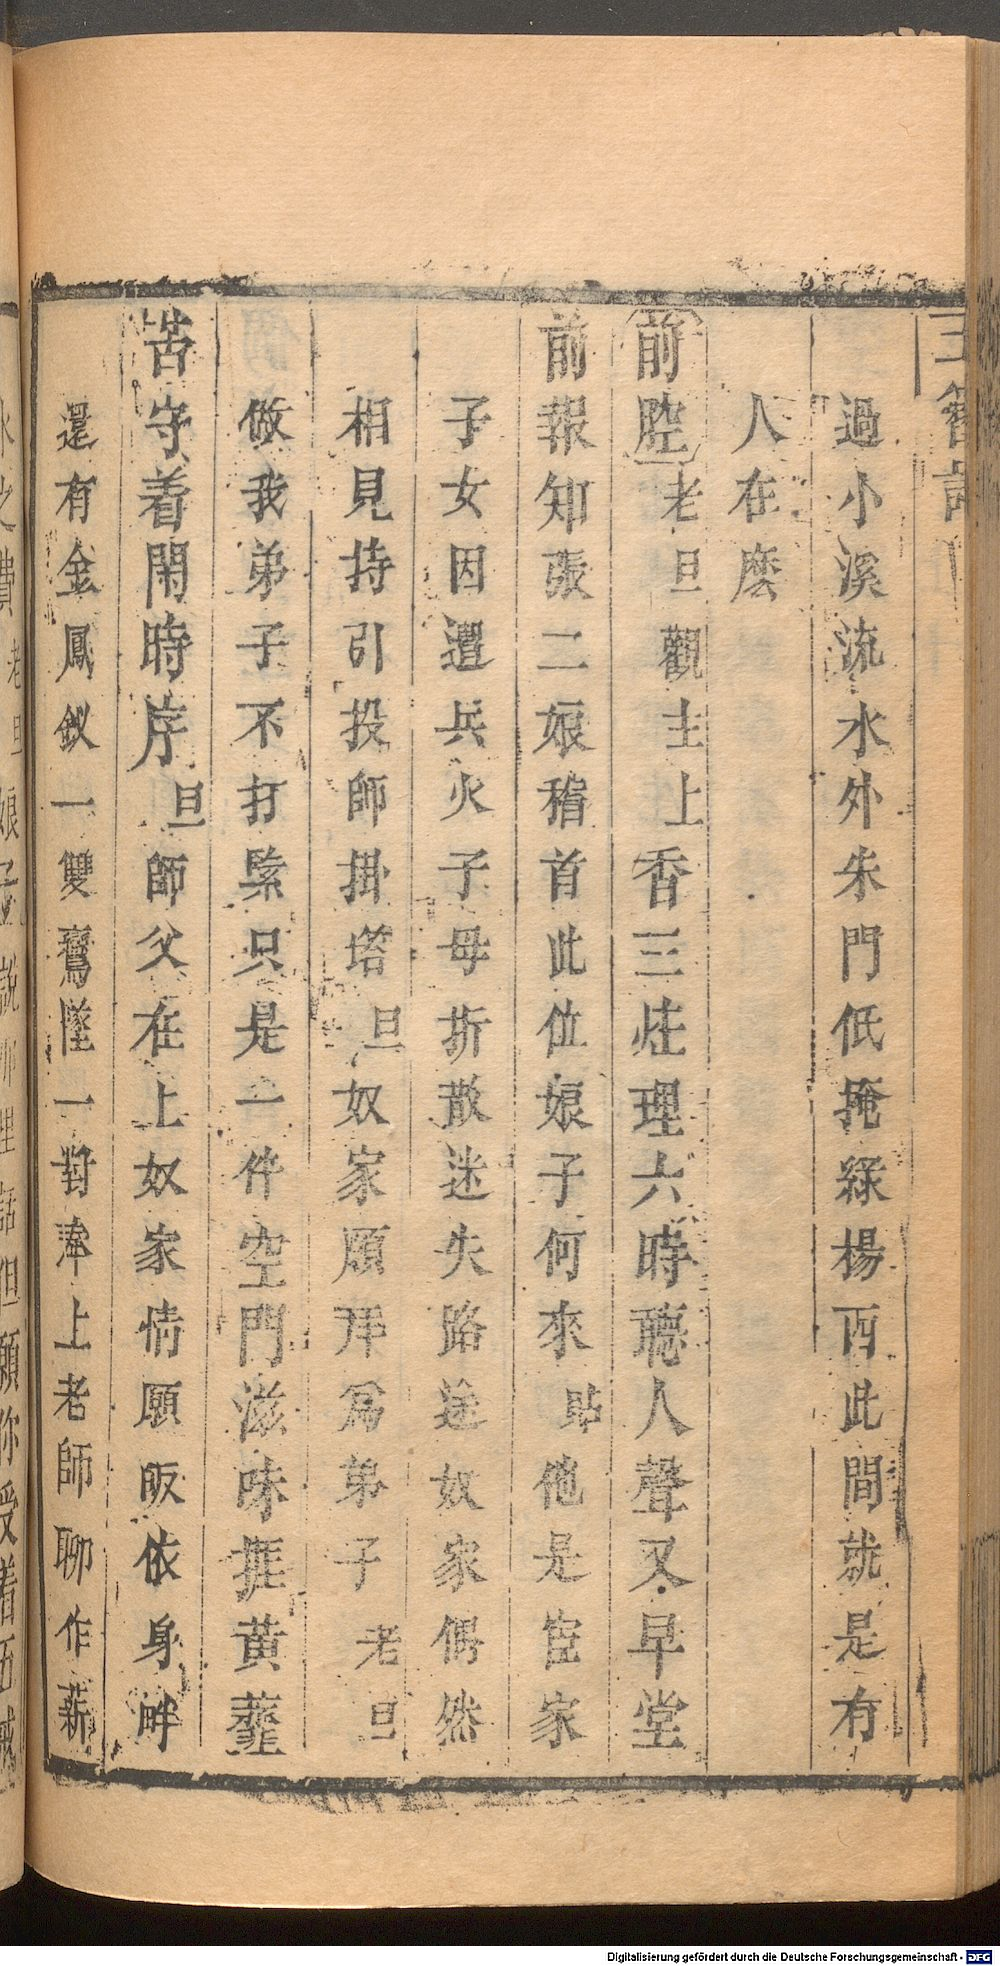 玉簪記
過小溪流水外朱門低掩綠楊西此間就是有
人在麽
前腔老旦觀主上香三炷理六時聽人聲又早堂
前報知張二娘稽首此位娘子何來貼他是宦家
子女因遭兵火子母折散迷失路途奴家偶然
相見持引投師掛塔旦奴家願拜爲弟子老旦
做我弟子不打緊只是一件空門滋味捱黄虀
苦守着閑時序旦師父在上奴家情願皈依身畔
還有金鳳釵一雙鴛墜一對奉上老師聊作薪
水之費老旦娘子説那里話但願你受着五戒
Digitalisierung gefördert durch die Deutsche Forschungsgemeinschaft - DFG